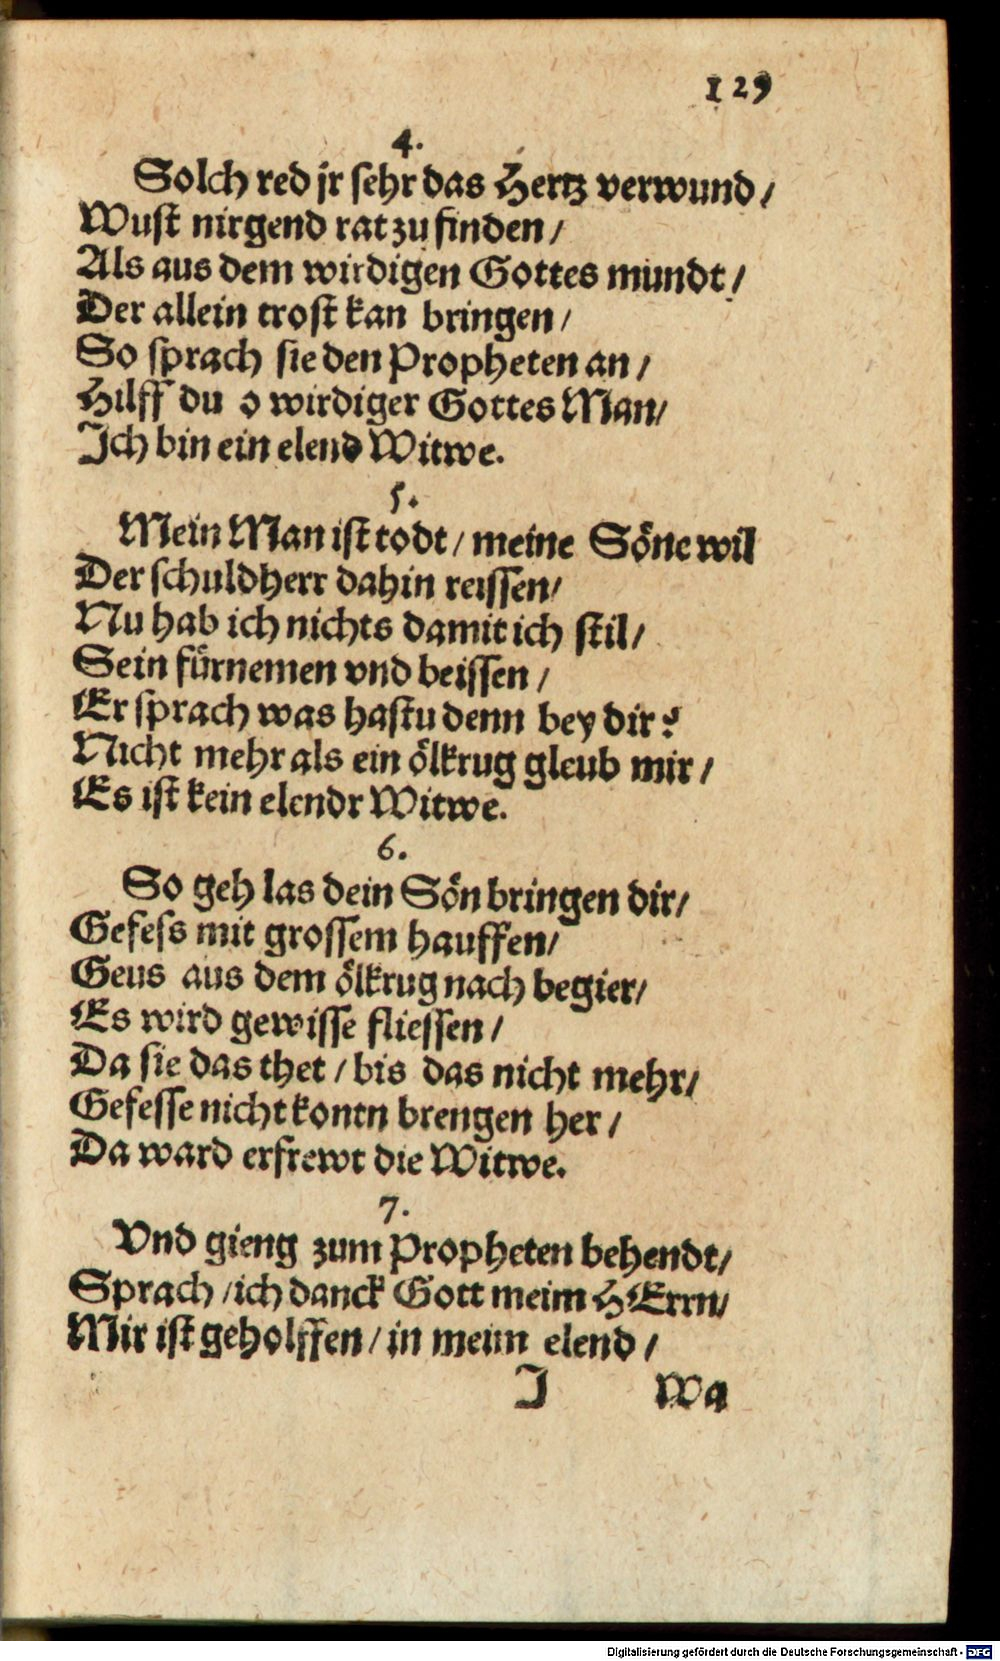 129
4.
Solch red jr sehr das Hertz verwund /
Wust nirgend rat zu finden /
Als aus dem wirdigen Gottes mundt /
Der allein trost kan bringen /
So sprach sie den Propheten an /
Hilff du o wirdiger Gottes Man /
Ich bin ein elend Witwe.
5.
Mein Man ist todt / meine Söne wil
Der schuldherr dahin reissen /
Nu hab ich nichts damit ich stil /
Sein fürnemen vnd beissen /
Er sprach was hastu denn bey dir?
Nicht mehr als ein ölkrug gleub mir /
Es ist kein elendr Witwe.
6.
So geh las dein Sön bringen dir /
Gefess mit grossem hauffen /
Geus aus dem ölkrug nach begier /
Es wird gewisse fliessen /
Da sie das thet / bis das nicht mehr /
Gefesse nicht kontn brengen her /
Da ward erfrewt die Witwe.
7.
Vnd gieng zum Propheten behendt /
Sprach / ich danck Gott meim HErrn /
Mir ist geholffen / in meim elend /
I Wa
Digitalisierung gefördert durch die Deutsche Forschungsgemeinschaft - DFG